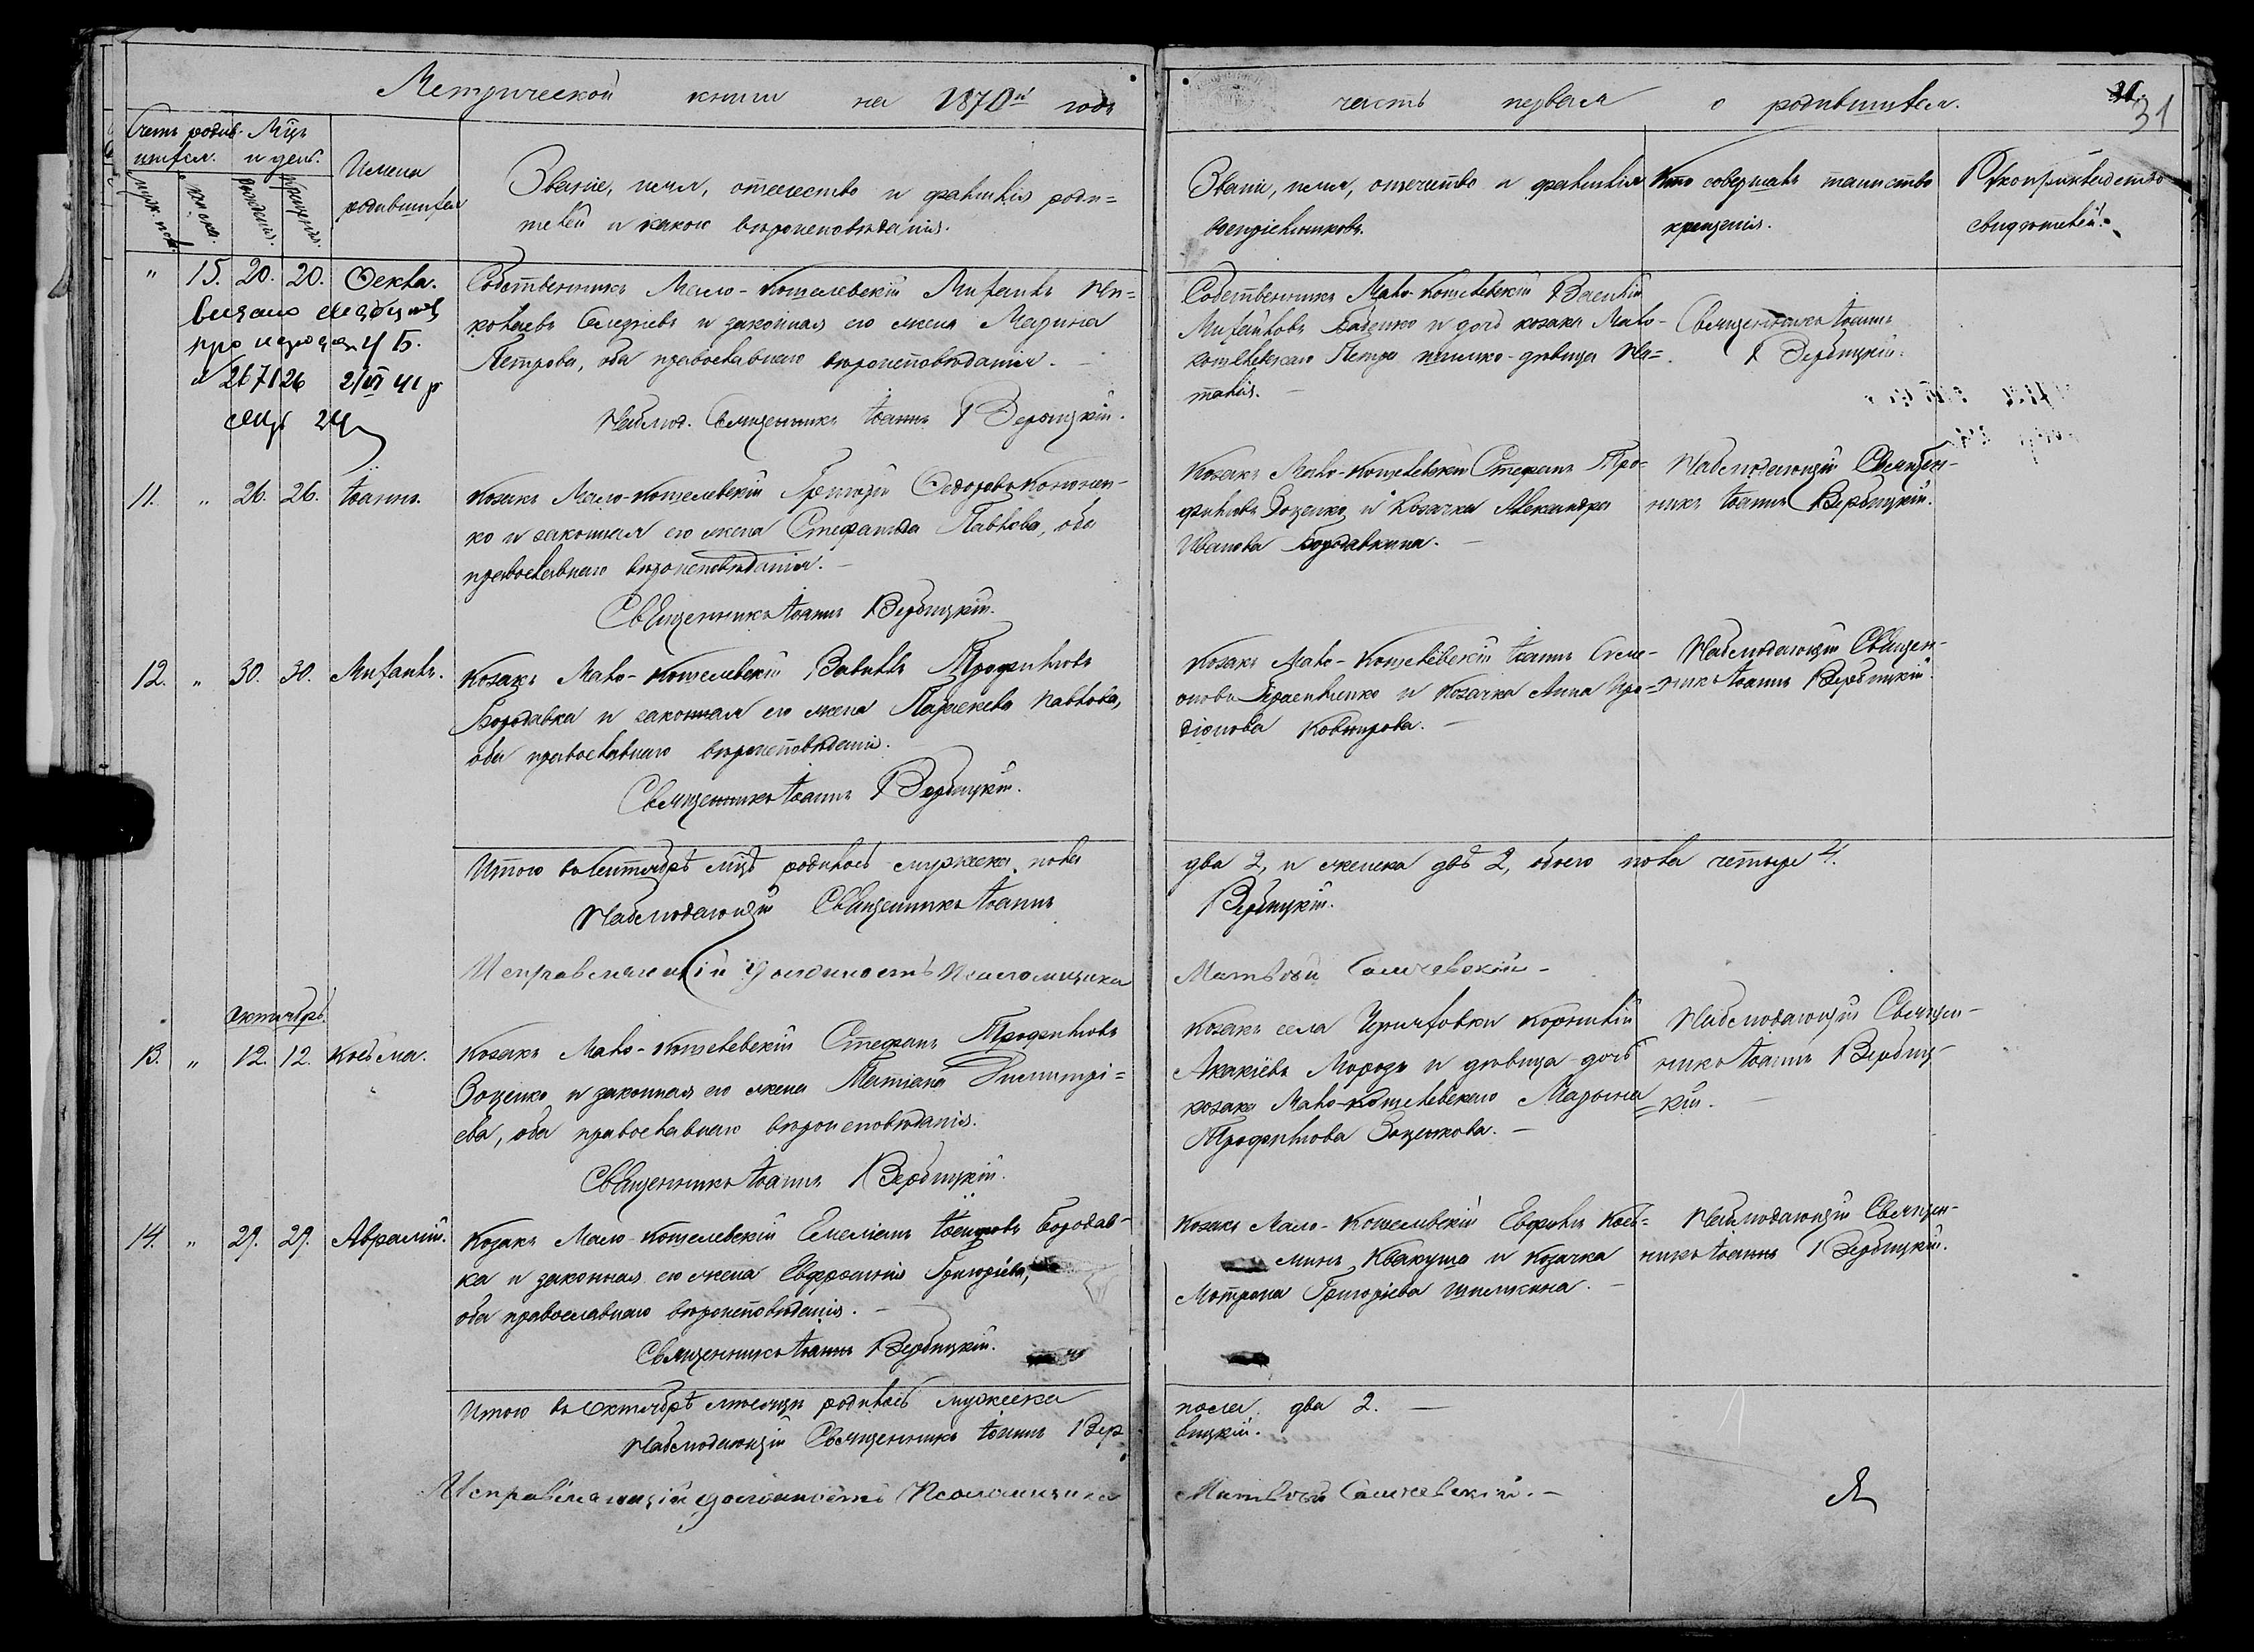 Метрической книги на 1870й годъ
часть первая о родившихся.
31
Счетъ родив-
шихся.
Мцъ
и день.
мужеска.
женска.
рожденія.
крещенія.
Имена
родившихся
Званіе, имя, отечество и фамилія роди=
телей и какого вѣроисповѣданія.
Званіе, имя, отечество и фамилія
воспріемниковъ.
Кто совершалъ таинство
крещенія.
Рукоприкладство
свидѣтелей.
" 15. 20. 20. Ѳекла.
видано
про народж.
26 2/VI 41 р
Собственникъ Мало-Кошелевскій Михаилъ Ни=
колаевъ Селезневъ и законная его жена Марина
Петрова, оба православнаго вѣроисповѣданія. —
Наблюд. Священникъ Іоаннъ Вербицкій.
Собственникъ Мало-Кошелевскій Василій
Михайловъ Баденко и дочь козака Мало-
кошелевскаго Петра дѣвица На=
талія. —
Священникъ Іоаннъ
Вербицкій.
11. " 26. 26. Іоаннъ.
Козакъ Мало-Кошелевскій Григорій Ѳедоровъ Кононен-
ко и законная его жена Стефанида Павлова, оба
православнаго вѣроисповѣданія. —
Священникъ Іоаннъ Вербицкій.
Козакъ Мало-Кошелевскій Стефанъ Тро-
филовъ Зоценко и Козачка Александра
Иванова Бородавкина. —
Наблюдающій Священ-
никъ Іоаннъ Вербицкій.
12. " 30. 30. Михаилъ.
Козакъ Мало-Кошелевскій Вавилъ Трофиловъ
Бородавка и законная его жена Параскева Павлова,
оба православнаго вѣроисповѣданія.
Священникъ Іоаннъ Вербицкій.
Козакъ Мало-Кошелевскій Іоаннъ Симе-
оновъ Герасименко и Козачка Анна Иро-
діонова —
Наблюдающій Священ-
никъ Іоаннъ Вербицкій.
Итого въ Сентябрѣ мцѣ родилось мужеска пола
два 2, и женска двѣ 2, обоего пола четыре 4.
Наблюдающій Священникъ Іоаннъ
Вербицкій.
Исправляющій должность Псаломщика
Матвѣй Самчевскій —
Октябрь.
13. " 12. 12. Косьма.
Козакъ Мало-Кошелевскій Стефанъ Трофиловъ
Зоценко и законная его жена Татіана Димитрі=
ева, оба православнаго вѣроисповѣданія.
Священникъ Іоаннъ Вербицкій.
Козакъ села Корнилій
Акакіевъ Морозъ и дѣвица дочь
козака Мало-Кошелевскаго Марина
Трофилова Зоценкова. —
Наблюдающій Священ-
никъ Іоаннъ Вербиц-
=кій. —
14. " 29. 29. Аврамій.
Козакъ Мало-Кошелевскій Емеліанъ Іосифовъ Бородав-
ка и законная его жена Евфросинія Григоріева,
оба православнаго вѣроисповѣданія. —
Священникъ Іоаннъ Вербицкій.
Козакъ Мало-Кошелевскій Евфилъ Кось=
минъ Квакуша и Козачка
Мотрона Григоріева Шпилькина. —
Наблюдающій Священ-
никъ Іоаннъ Вербицкій.
Итого въ Октябрѣ мѣсяцѣ родилось мужеска
пола два 2. —
Наблюдающій Священникъ Іоаннъ Вер
бицкій.
Исправляющій должность Псаломщика
Матвѣй Самчевскій. —